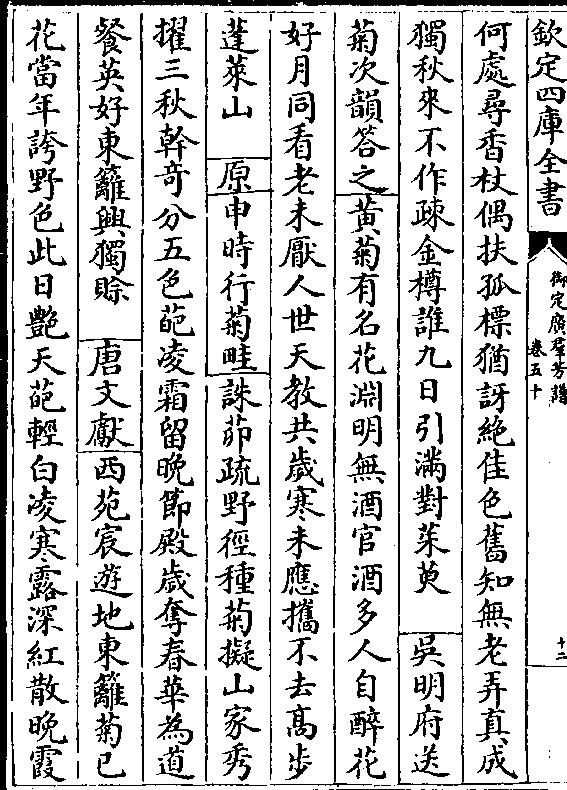 欽定四庫全書
御定廣羣芳譜
卷五十
十二
何處尋香杖偶扶孤標猶訝絶佳色舊知無老弄真成
獨秋來不作疎金樽誰九日引滿對茱萸　吳明府送
菊次韻答之黃菊有名花淵明無酒官酒多人自醉花
好月同看老未厭人世天教共歲寒未應攜不去高步
蓬萊山　原申時行菊畦誅茆疏野徑種菊擬山家秀
擢三秋幹奇分五色葩凌霜留晚節殿歲奪春華為道
餐英好東籬興獨賒　唐文獻西苑宸遊地東籬菊已
花當年誇野色此日艷天葩輕白凌寒露深紅散晚霞